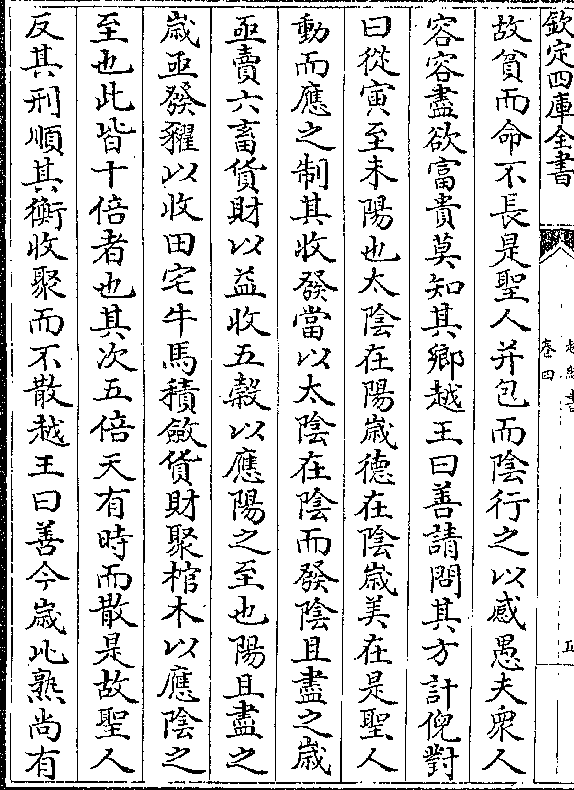 欽定四庫全書
越絶書
卷四
五
故貧而命不長是聖人并包而陰行之以感愚夫衆人
容容盡欲富貴莫知其鄉越王曰善請問其方計倪對
曰從寅至未陽也太陰在陽歲德在陰歲美在是聖人
動而應之制其收發當以太陰在陰而發陰且盡之歲
亟賣六畜貨財以益收五榖以應陽之至也陽且盡之
歲亟發糴以收田宅牛馬積斂貨財聚棺木以應陰之
至也此皆十倍者也其次五倍天有時而散是故聖人
反其刑順其衡收聚而不散越王曰善今歲比熟尚有